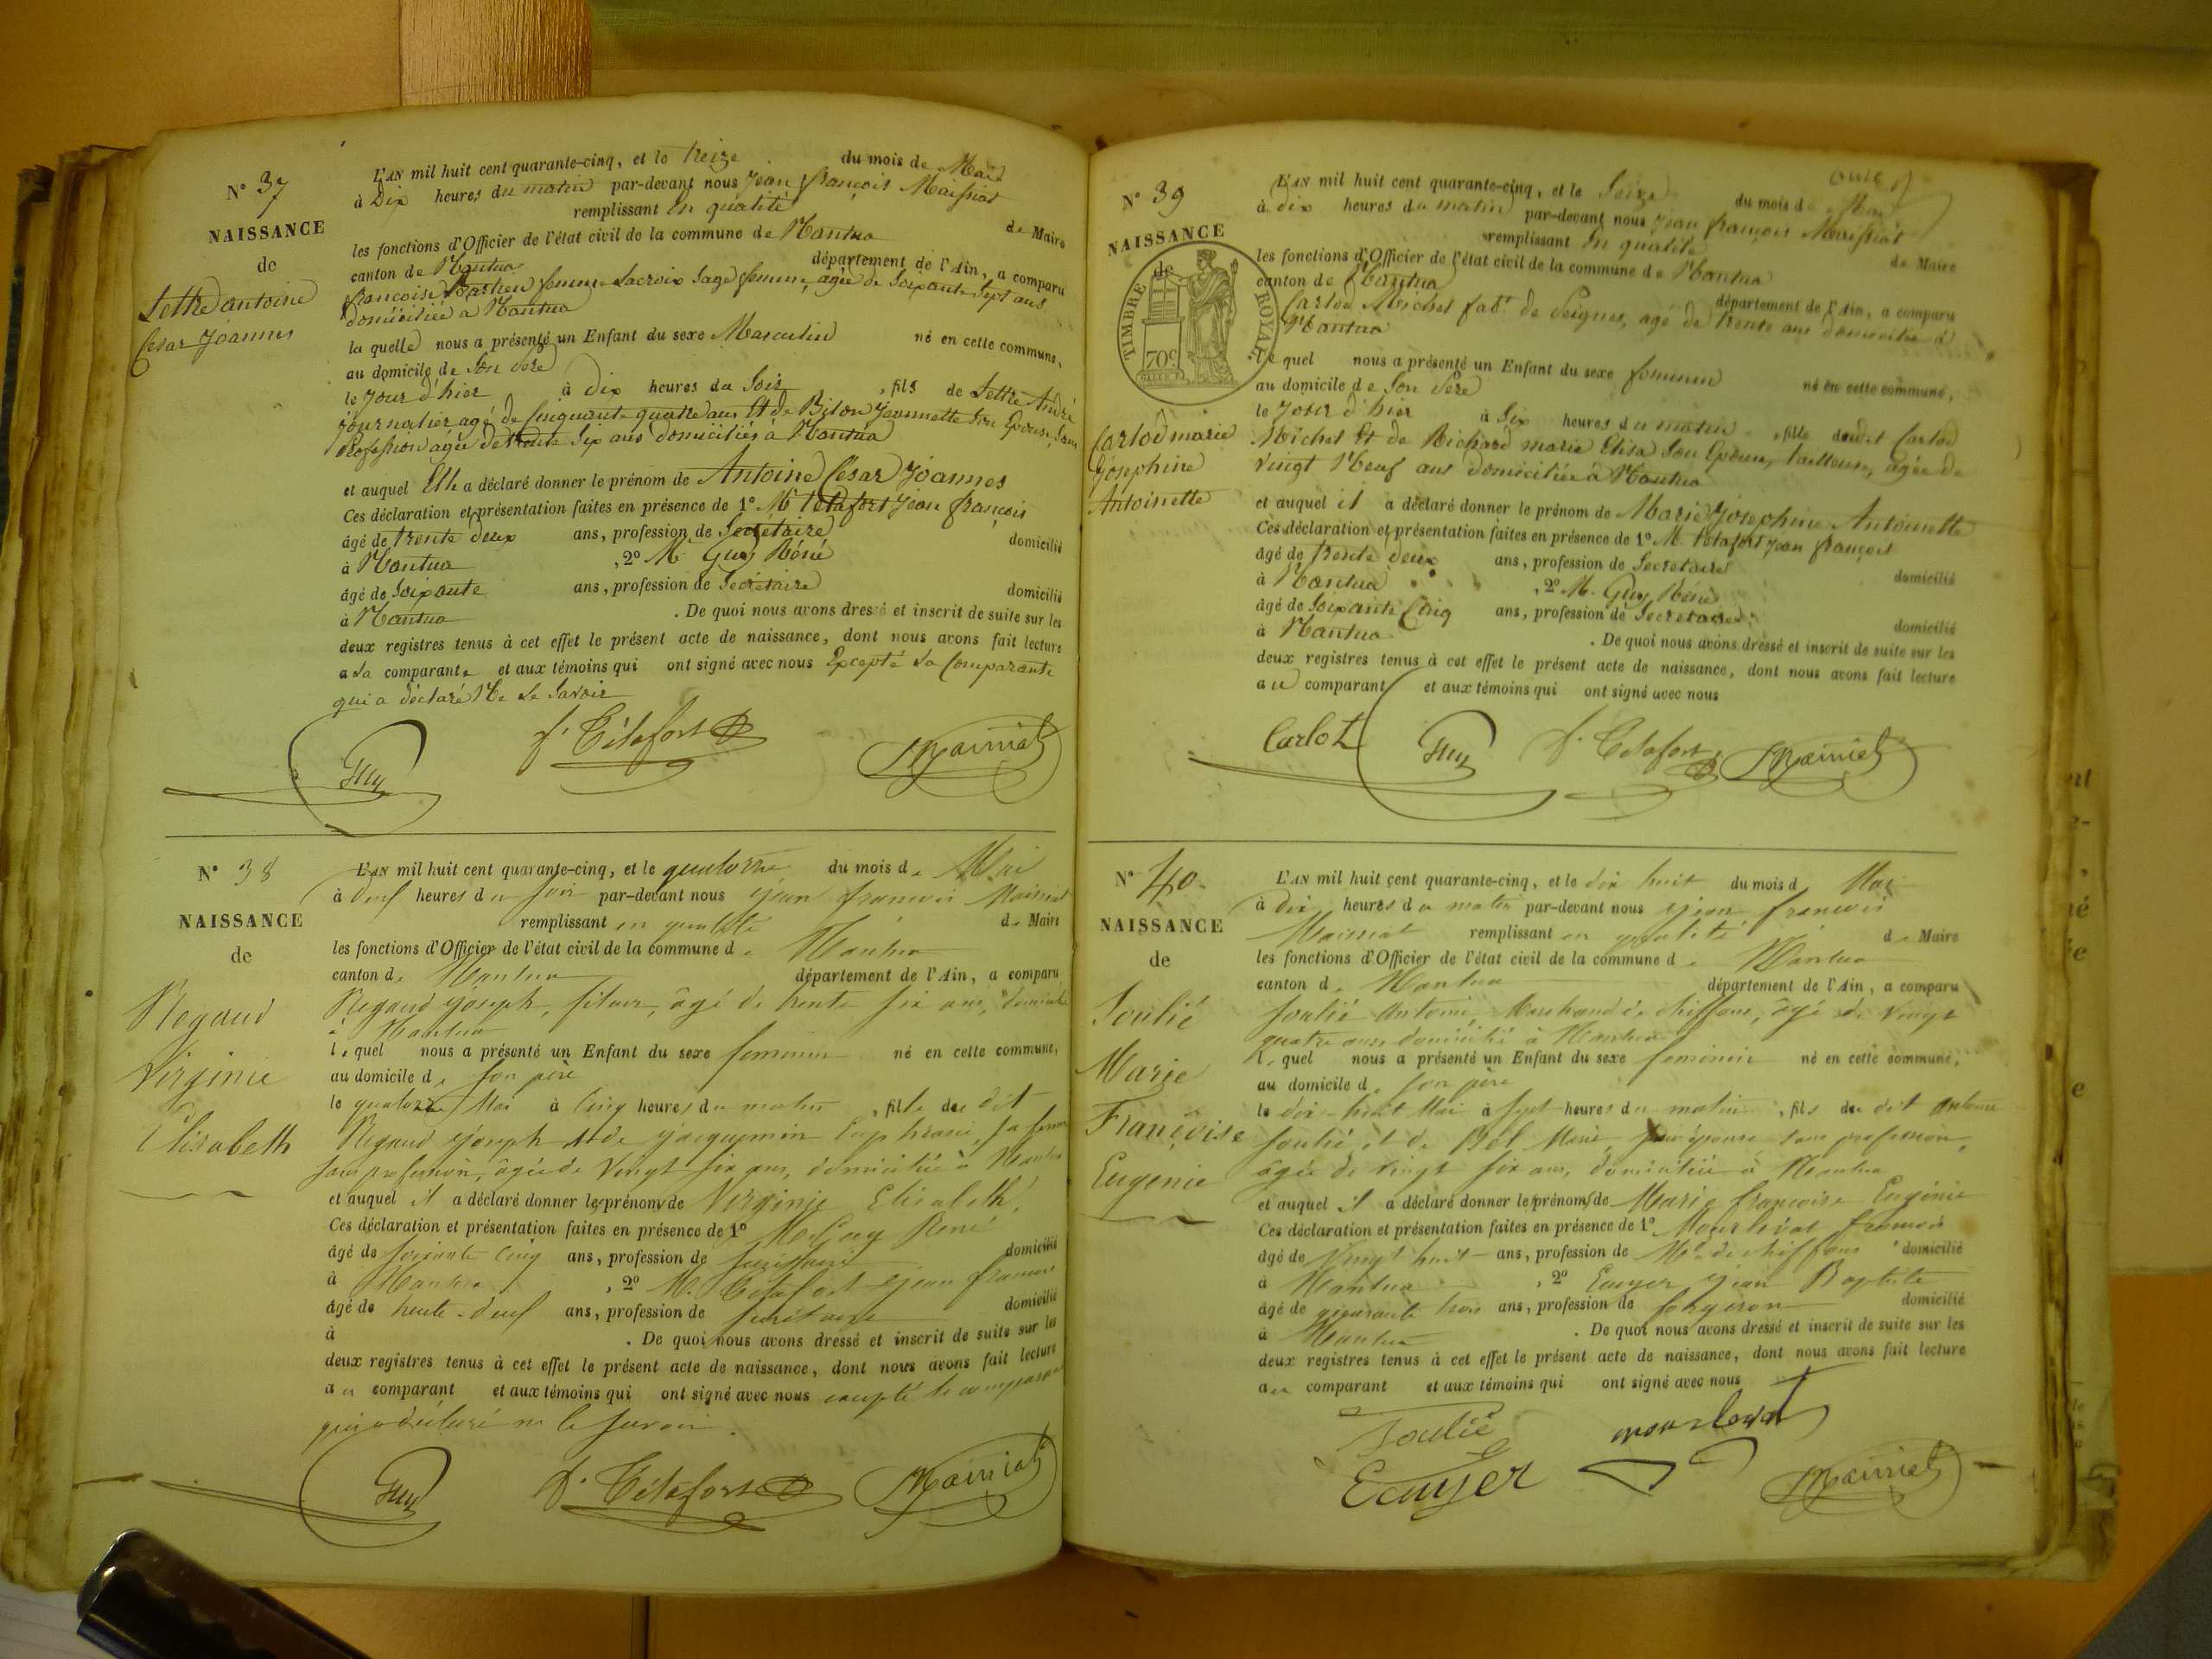 N° 37
NAISSANCE
de
Lethé antoine
Cesar Joannes
L'AN mil huit cent quarante-cinq, et le treize du mois de Mai
à Dix heures du matin par-devant nous Jean françois Maissiat
remplissant En qualité de Maire
les fonctions d'Officier de l'état civil de la commune de Nantua
canton de Nantua département de l'Ain, a comparu
françoise femme Lacroix Sage femme, agée de Soixante Sept ans
domiciliée a Nantua
la quelle nous a présenté un Enfant du sexe Masculin né en cette commune,
au domicile de Son Pere
le Jour d'hier à Dix heures du Soir, fils de Lethé André
journalier agé de Cinquante quatre ans Et de Jeannette Son Epouse, Sans
Profession agée de trente Six ans domiciliés à Nantua
et auquel Elle a déclaré donner le prénom de Antoine César Joannes
Ces déclaration et présentation faites en présence de 1° M. Tétafort Jean françois
âgé de trente deux ans, profession de Secrétaire domicilié
à Nantua, 2° M. Guy Réné
âgé de Soixante ans, profession de Secrétaire domicilié
à Nantua. De quoi nous avons dressé et inscrit de suite sur les
deux registres tenus à cet effet le présent acte de naissance, dont nous avons fait lecture
a la comparante et aux témoins qui ont signé avec nous Excepté la Comparante
qui a déclaré Ne le Savoir
Guy f. Tétafort Maissiat
N° 38
NAISSANCE
de
Regaud
Virginie
Elisabeth
L'AN mil huit cent quarante-cinq, et le quatorze du mois de Mai
à deuf heures du soir par-devant nous jean francois Maissiat
remplissant en qualité de Maire
les fonctions d'Officier de l'état civil de la commune de Nantua
canton de Nantua département de l'Ain, a comparu
Regaud Joseph, fileur, âgé de trente six ans, domicilié
à Nantua
lequel nous a présenté un Enfant du sexe feminin né en cette commune,
au domicile de son père
le quatorze Mai à Cinq heures du matin, fille du dit
Regaud Joseph et de jacquemin Euphrasie, sa femme
sans profession, âgée de Vingt six ans, domiciliée à Nantua
et auquel il a déclaré donner les prénoms de Virginie Elisabeth,
Ces déclaration et présentation faites en présence de 1° M. Guy René
âgé de soixante cinq ans, profession de secrétaire domicilié
à Nantua, 2° M. Tétafort jean francois
âgé de trente-deuf ans, profession de secrétaire domicilié
à . De quoi nous avons dressé et inscrit de suite sur les
deux registres tenus à cet effet le présent acte de naissance, dont nous avons fait lecture
au comparant et aux témoins qui ont signé avec nous excepté le comparant
qui a déclaré ne le savoir.
Guy f. Tétafort Maissiat
N° 39
NAISSANCE
de
TIMBRE ROYAL
70c
Carlod marie
Joséphine
Antoinette
L'AN mil huit cent quarante-cinq, et le Seize du mois de Mai
à dix heures du matin par-devant nous Jean françois Maissiat
remplissant En qualité de Maire
les fonctions d'Officier de l'état civil de la commune de Nantua
canton de Nantua département de l'Ain, a comparu
Carlod Michel fabt de Peignes, agé de trente ans domicilié à
Nantua
le quel nous a présenté un Enfant du sexe feminin né en cette commune,
au domicile de Son Pere
le Jour d'hier à Six heures du matin, fille dudit Carlod
Michel Et de Richard marie Elisa Son Epouse, tailleuse, agée de
vingt Neuf ans domiciliée à Nantua
et auquel il a déclaré donner le prénom de Marie Josephine Antoinette
Ces déclaration et présentation faites en présence de 1° M. tétafort Jean françois
âgé de trente deux ans, profession de Secretaire domicilié
à Nantua, 2° M. Guy Réné
âgé de Soixante Cinq ans, profession de Secretaire domicilié
à Nantua. De quoi nous avons dressé et inscrit de suite sur les
deux registres tenus à cet effet le présent acte de naissance, dont nous avons fait lecture
au comparant et aux témoins qui ont signé avec nous
Carlot Guy f. Tétafort Maissiat
N° 40.
NAISSANCE
de
Soulié
Marie
Françoise
Eugenie
L'AN mil huit cent quarante-cinq, et le dix huit du mois d Mai
à dix heures du matin par-devant nous jean francois
Maissiat remplissant en qualité de Maire
les fonctions d'Officier de l'état civil de la commune de Nantua
canton de Nantua département de l'Ain, a comparu
Soulié Antoine Marchand de chiffons, âgé de Vingt
quatre ans, domicilié à Nantua
lequel nous a présenté un Enfant du sexe feminin né en cette commune,
au domicile de son père
le dix-huit Mai à sept heures du matin, fils du dit Antoine
Soulié et de Bel Marie son épouse sans profession,
âgée de vingt six ans, domiciliée à Nantua
et auquel il a déclaré donner les prénoms de Marie françoise Eugénie
Ces déclaration et présentation faites en présence de 1° francois
âgé de Vingt huit ans, profession de Md de chiffons domicilié
à Nantua, 2° Ecuyer jean Baptiste
âgé de quarante trois ans, profession de forgeron domicilié
à Nantua. De quoi nous avons dressé et inscrit de suite sur les
deux registres tenus à cet effet le présent acte de naissance, dont nous avons fait lecture
au comparant et aux témoins qui ont signé avec nous
Soulié
Ecuyer Maissiat